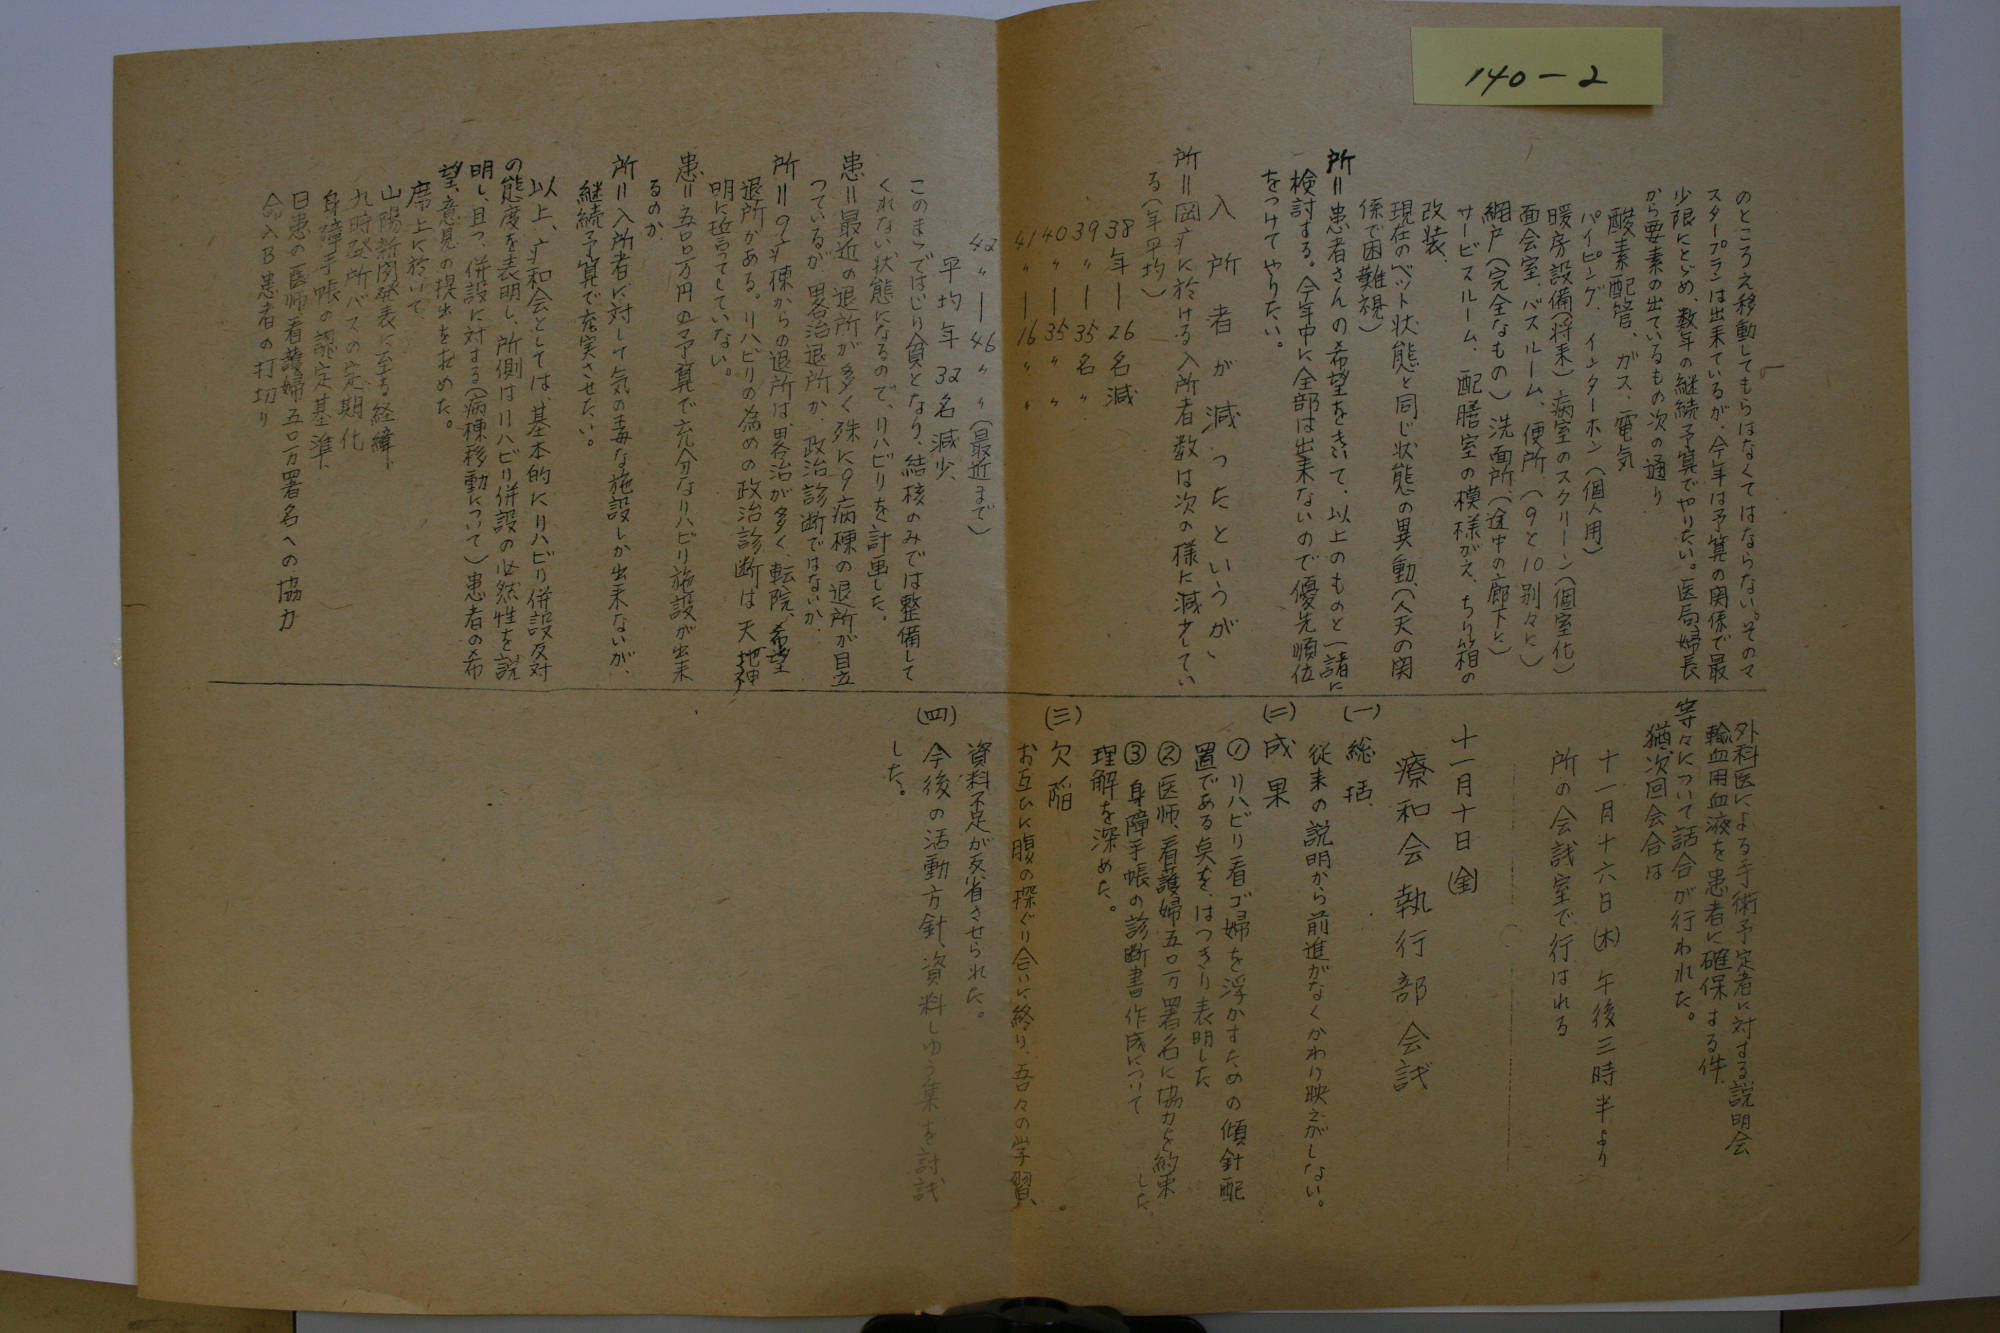 140-2
のところえ移動してもらはなくてはならない。そのマ
スタープランは出来ているが、今年は予算の関係で最
少限にとゞめ、数年の継続予算でやりたい。医局、婦長
から要素の出ているもの次の通り
酸素配管、ガス、電気
パイピング、インターホン（個人用）
暖房設備（将来）病室のスクリーン（個室化）
面会室、バスルーム、便所、（9と10別々に）
網戸（完全なもの）洗面所、（途中の廊下に）
サービスルーム、配膳室の模様がえ、ちり箱の
改装、
現在のベット状態と同じ状態の異動、（人天の関
係で困難視）
所＝患者さんの希望をきいて、以上のものと一諸に
検討する。今年中に全部は出来ないので優先順位
をつけてやりたい。
入所者が減ったというが、
所＝岡療に於ける入所者数は次の様に減少してい
る（年平均）
38年ー26名減
39〃ー35名〃
40〃ー35〃〃
41〃ー16〃〃
42〃ー46〃〃（最近まで）
平均年32名減少、
このまゝではじり貧となり、結核のみでは整備して
くれない状態になるので、リハビリを計画した。
患＝最近の退所が多く殊に9病棟の退所が目立
っているが畧治退所か、政治診断ではないか、
所＝9病棟からの退所は、畧治が多く、転院、希望
退所がある。リハビリの為めの政治診断は天地神
明に誓ってしていない。
患＝五〇〇万円の予算で充分なリハビリ施設が出来
るのか
所＝入所者に対して気の毒な施設しか出来ないが、
継続予算で充実させたい。
以上、療和会としては、基本的にリハビリ併設反対
の態度を表明し、所側はリハビリ併設の必然性を説
明し、且つ、併設に対する（病棟移動について）患者の希
望、意見の提出を求めた。
席上に於いて、
山陽新聞発表に至る経緯、
九時発所バスの定期化
身障手帳の認定基準、
日患の医師看護婦五〇万署名への協力
命入B患者の打切り
外科医による手術予定者に対する説明会
輸血用血液を患者に確保する件、
等々について話合が行われた。
猶、次回会合は
十一月十六日（木）午後三時半より
所の会議室で行はれる
十一月十日（金）
療和会執行部会議
（一）総括、
従来の説明から前進がなくかわり映えがしない。
（二）成果
①リハビリ看ゴ婦を浮かすための傾針配
置である点を、はっきり表明した
②医師、看護婦五〇万署名に協力を約束した
③身障手帳の診断書作成について
理解を深めた。
（三）欠陥
お互ひに腹の探ぐり合いに終り、吾々の学習、
資料不足が反省させられた。
（四）今後の活動方針、資料しゆう集を討議
した。